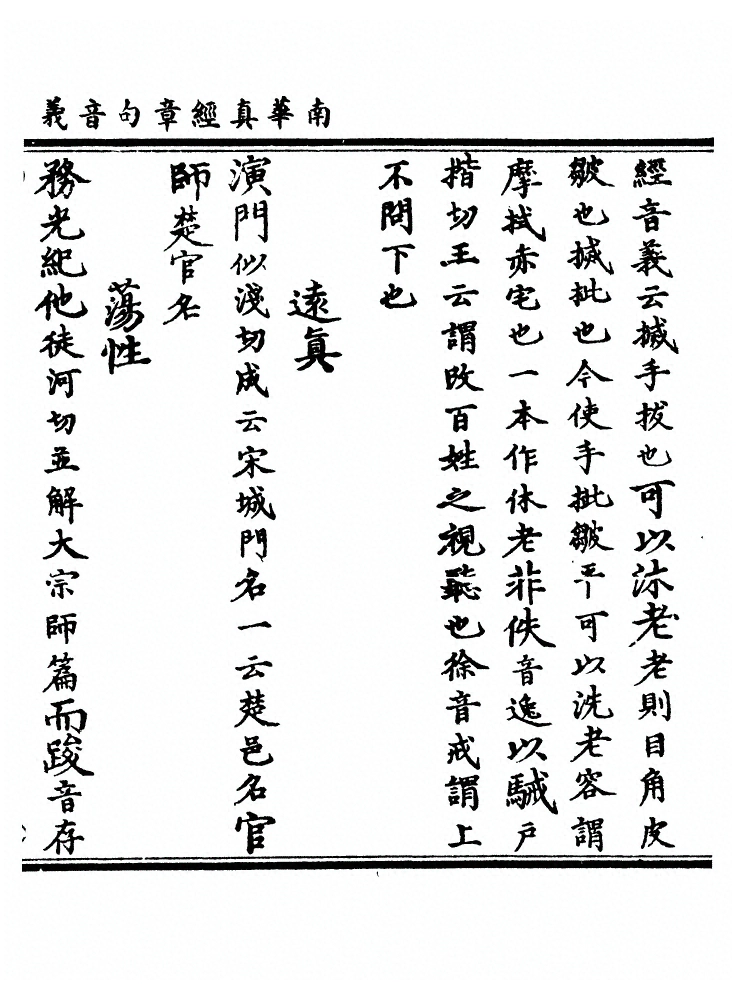 南華真經章句音義
經音義云搣手拔也可以沐老老則目角皮
皺也搣批也今使手批皺平可以洗老容謂
摩拭赤宅也一本作休老非佚音逸以駴戶
揩切王云謂改百姓之視聽也徐音戒謂上
不問下也
遠真
演門似淺切成云宋城門名一云楚邑名官
師楚官名
蕩性
務光紀他徒河切並解大宗師篇而踆音存